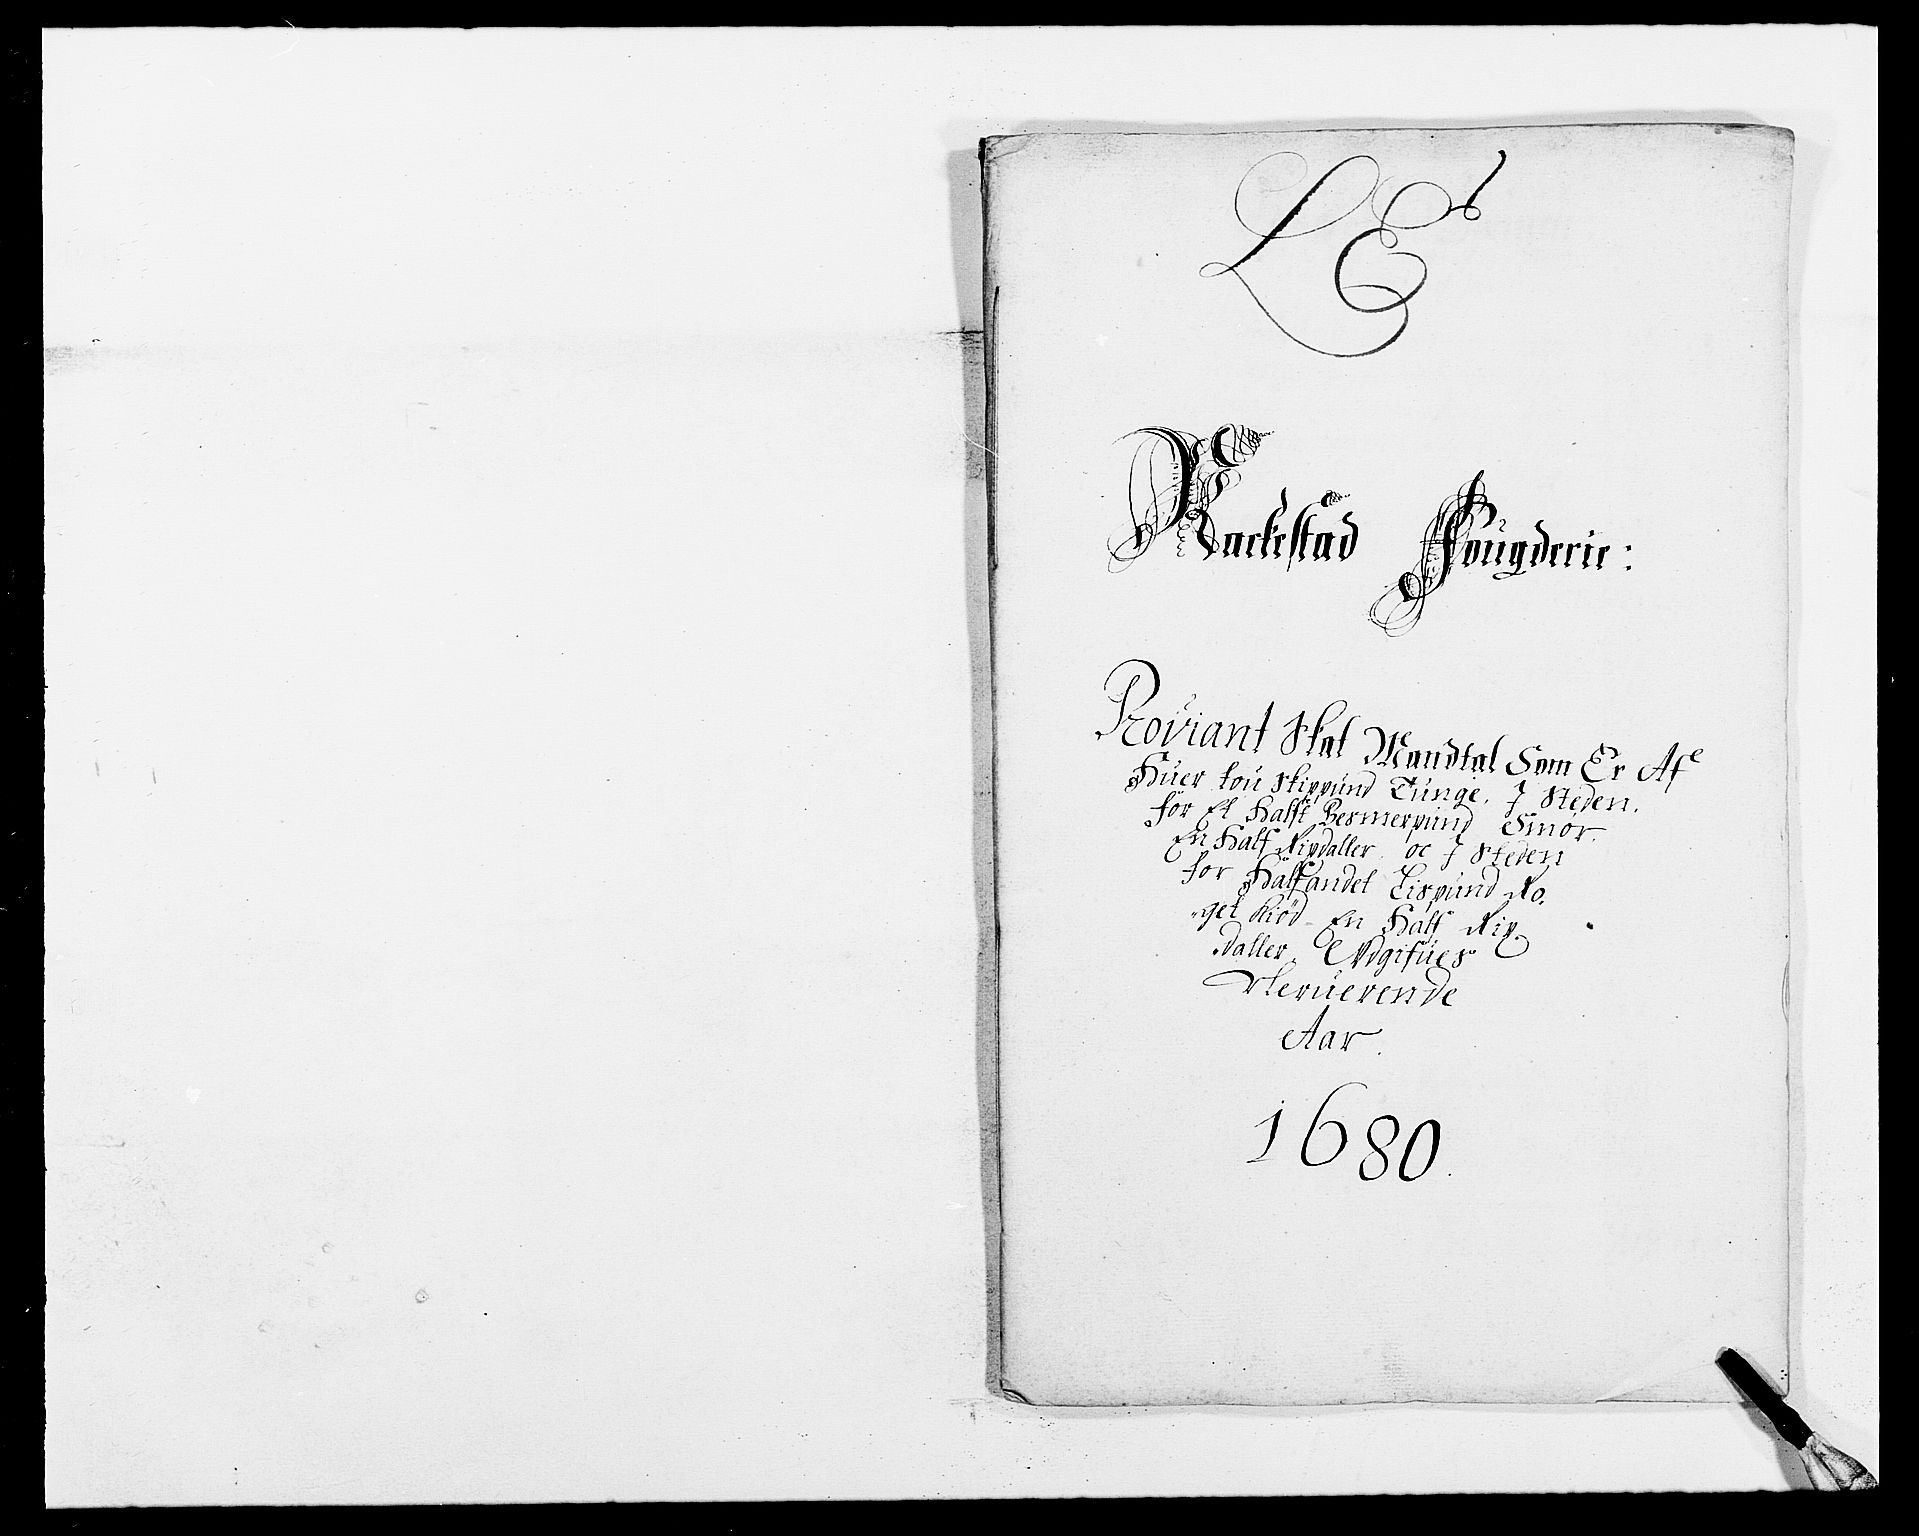 LE
Rackestad Fougderie:
Proviant Skat Mandtal Som Er Af
Huer tou Skippund Tunge. J Steden.
for Et Halft Besmerpund Smør.
En Half Rixdaller. oc J Steden
for Halfandet Lispund No.
get Kiød En Half Rix
daller. Udgifues
Aar.
1680.